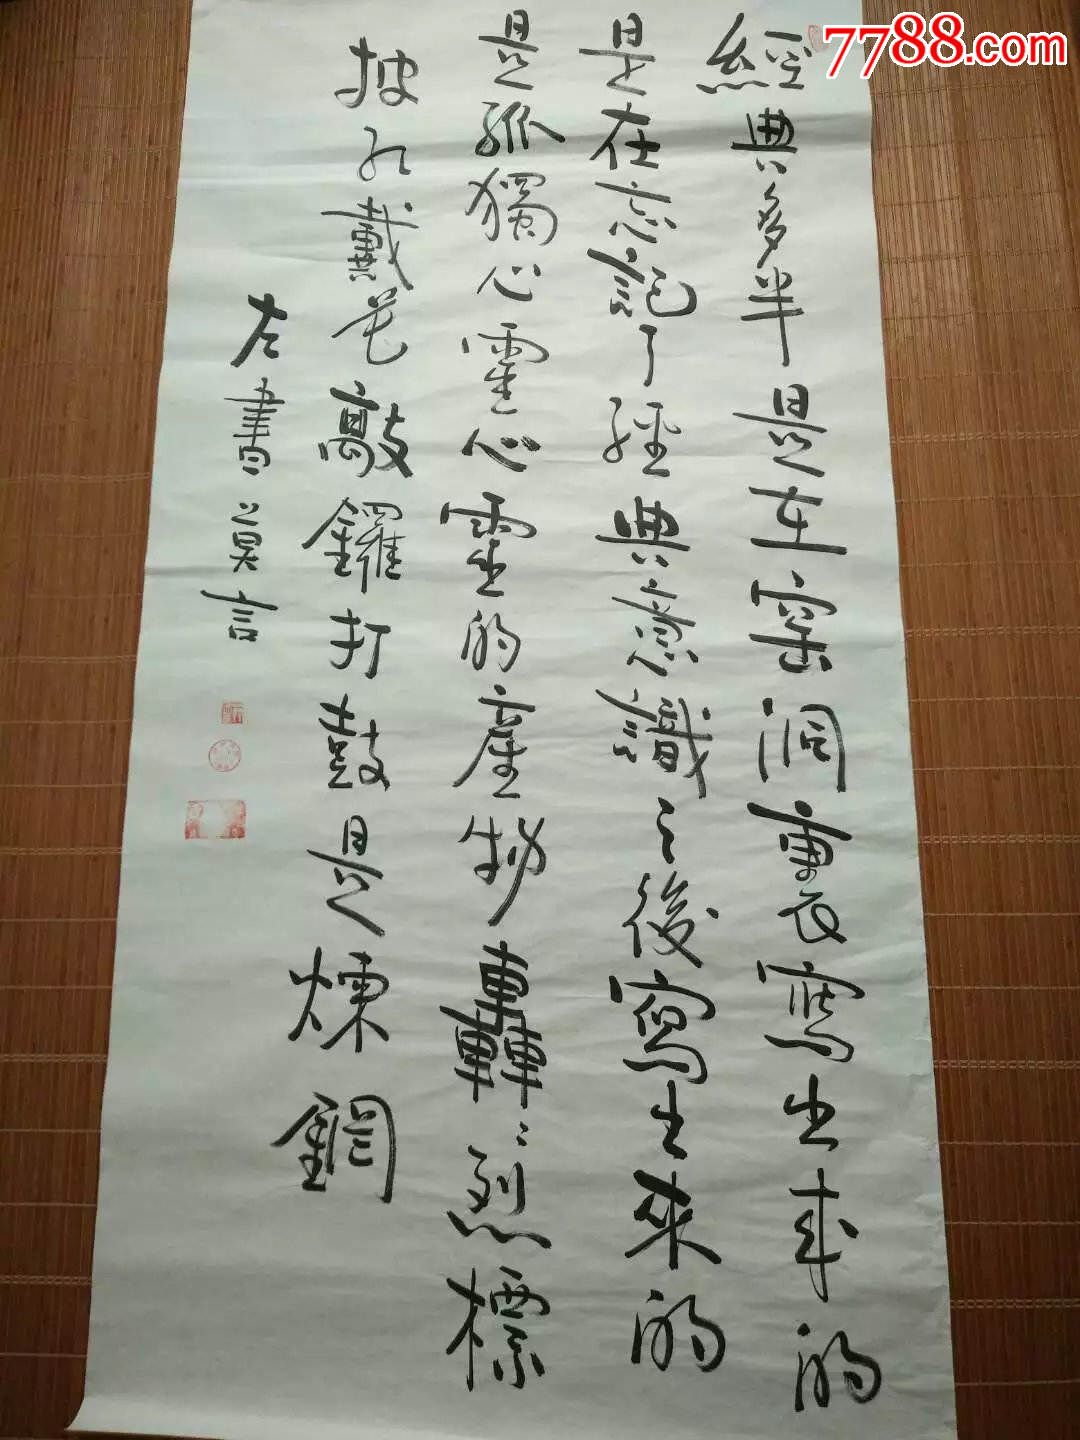 7788.com
經典多半是在窑洞裏寫出來的
是在忘記了經典意識之後寫出來的
是孤獨心靈心靈的產物轟〻烈標
披红戴花敲鑼打鼓是煉鋼
左書莫言